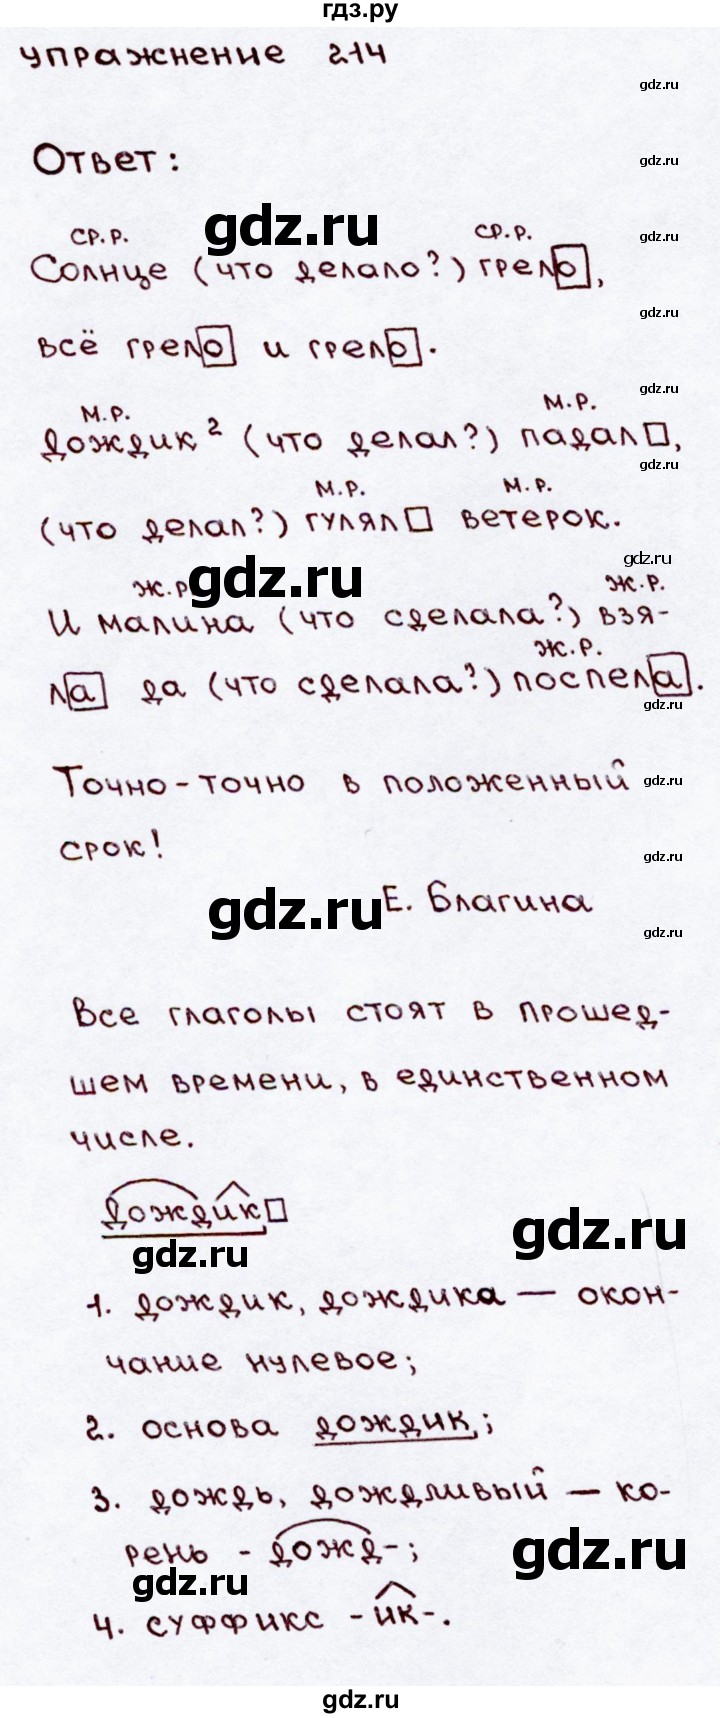 гдз.ру
упражнение 214
gdz.ru
Ответ:
gdz.ru
gdz.ru
ср.р. ср.р.
gdz.ru
Солнце (что делало?) грело,
gdz.ru
всё грело и грело.
gdz.ru
м.р. м.р.
Дождик² (что делал?) падал,
gdz.ru
м.р. м.р.
(что делал?) гулял ветерок.
gdz.ru
gdz.ru
ж.р ж.р.
И малина (что сделала?) взя-
ж.р.
ла да (что сделала?) поспела.
gdz.ru
Точно-точно в положенный
gdz.ru
срок!
gdz.ru
gdz.ru
Е. Благина
gdz.ru
Все глаголы стоят в прошед-
шем времени, в единственном
числе.
дождик
gdz.ru
gdz.ru
1. дождик, дождика — окон-
чание нулевое;
2. основа дождик;
3. дождь, дождливый — ко-
рень - дожд-;
gdz.ru
gdz.ru
4. суффикс -ик-.
gdz.ru